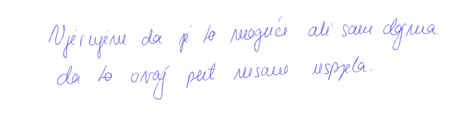 Vjerujem da je to moguće ali sam dojma
da to ovaj put nisam uspjela.